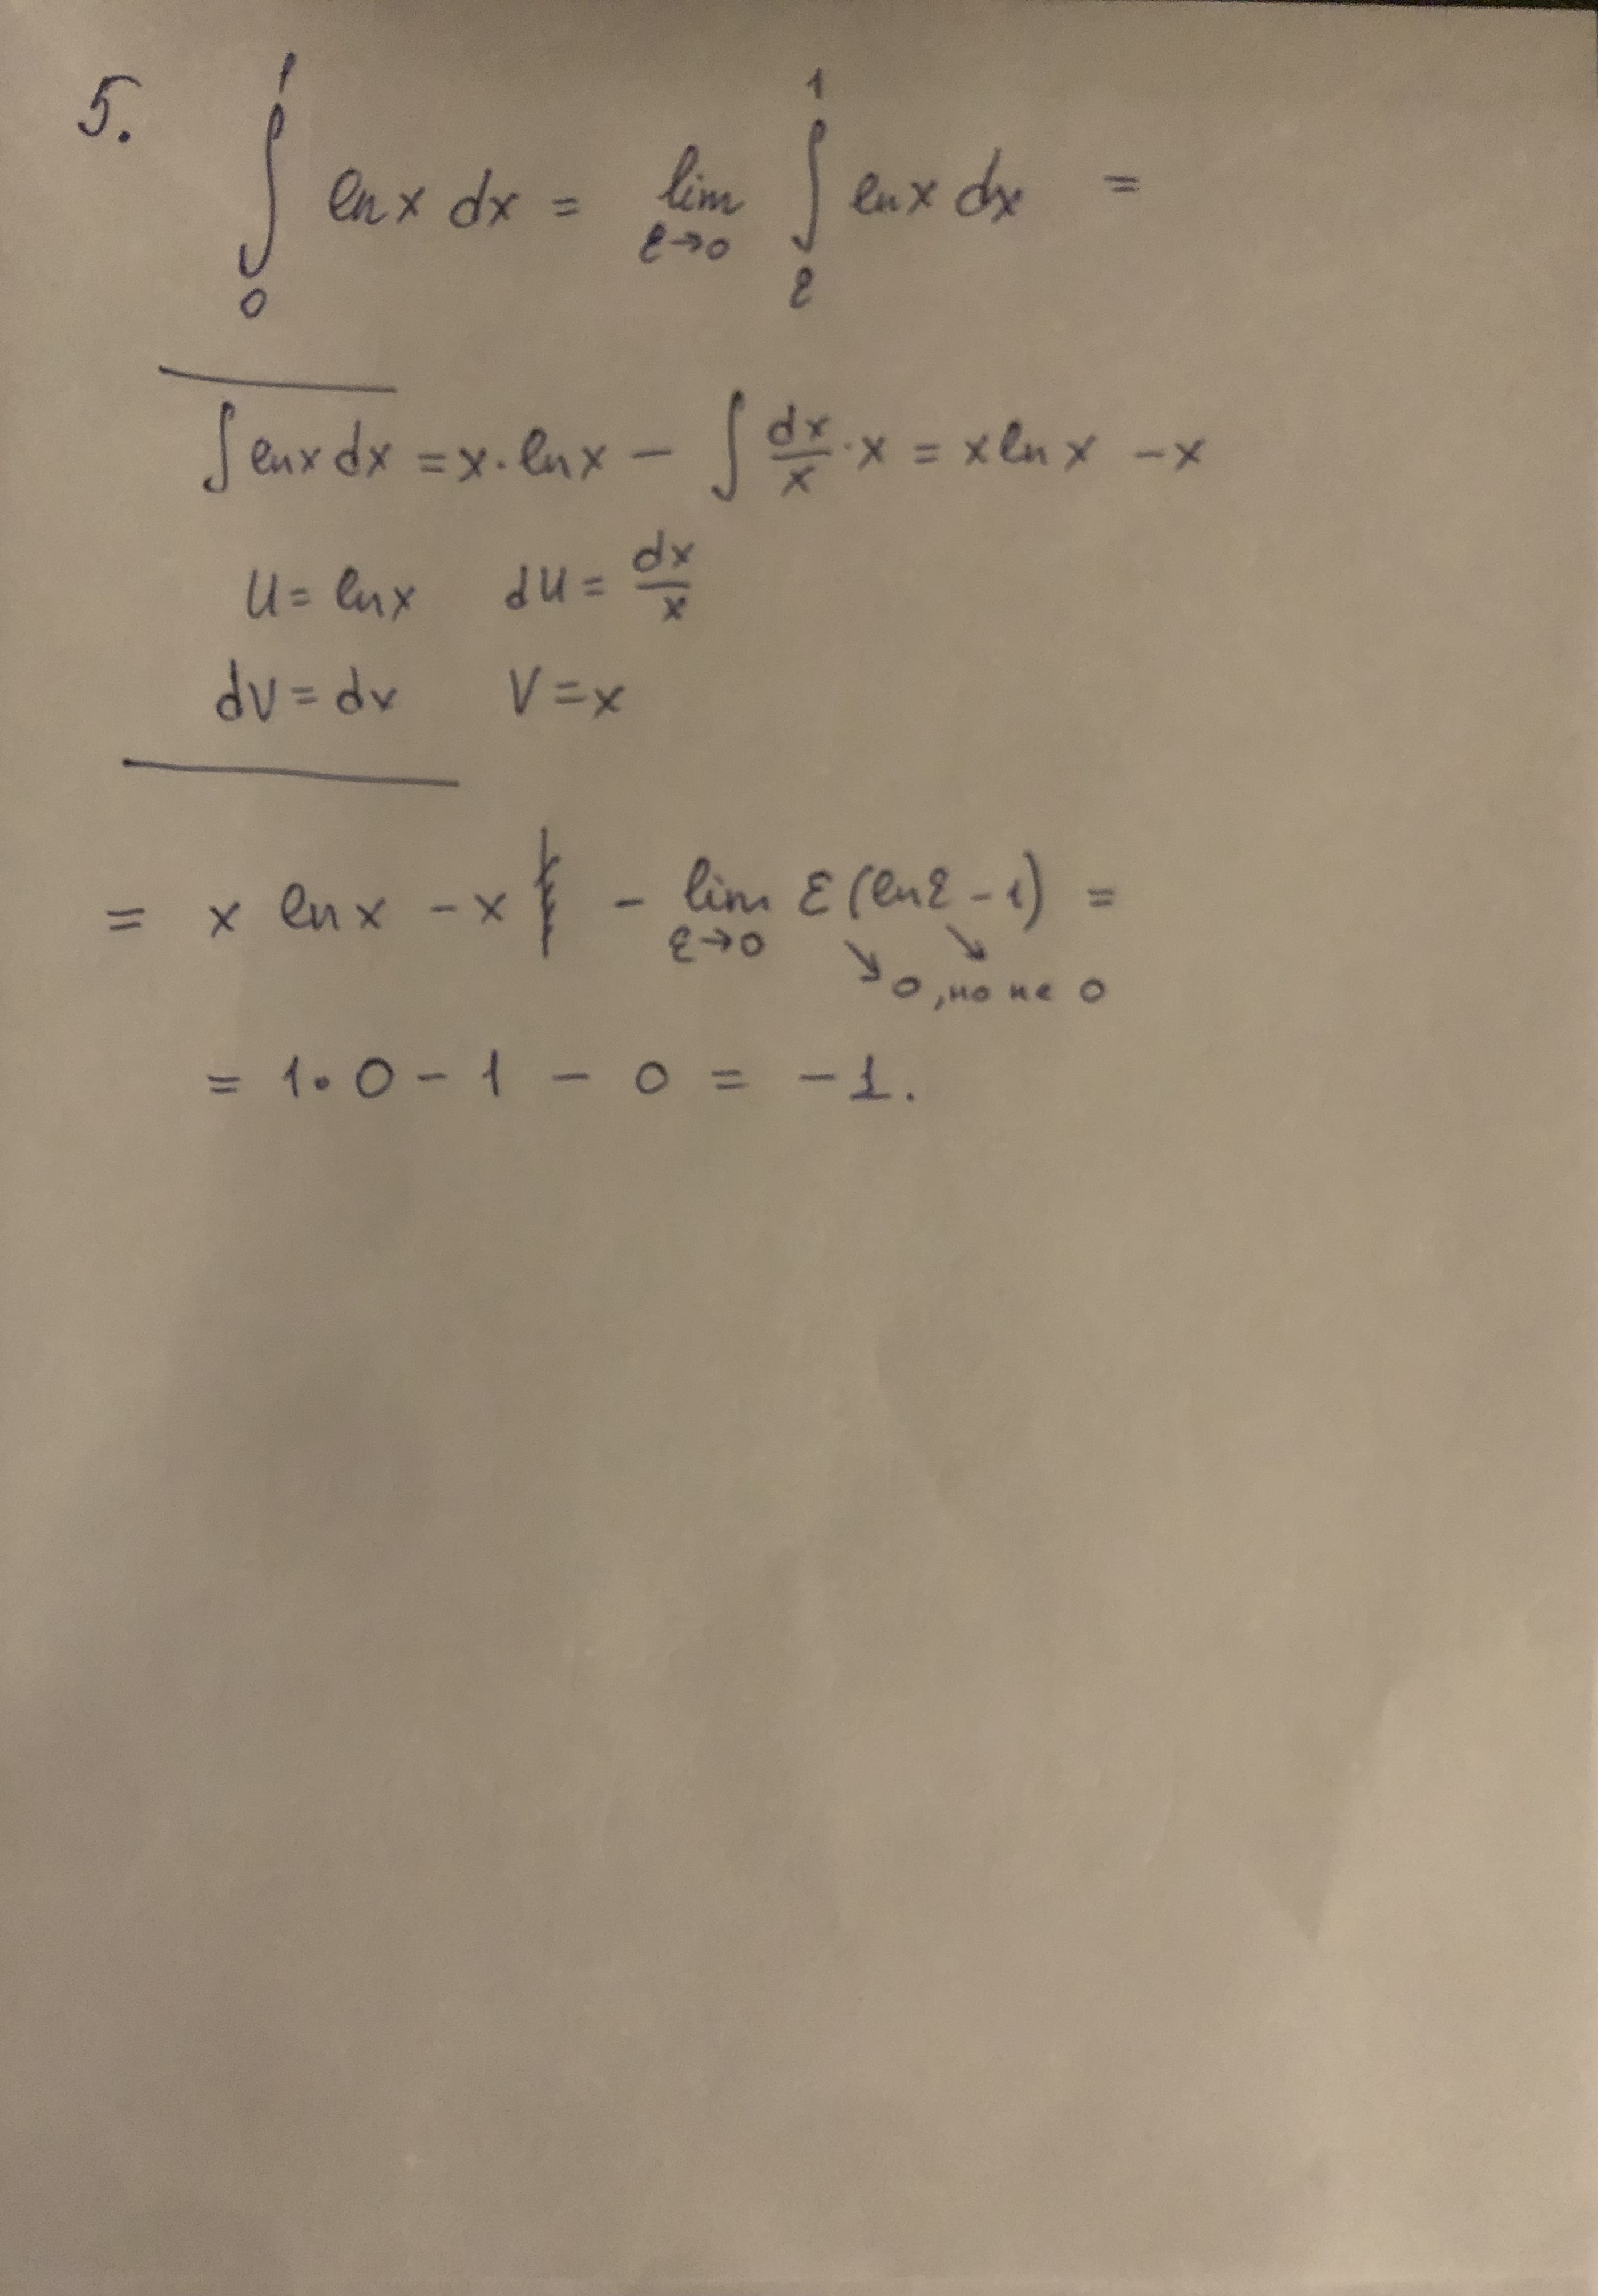 5. ∫₀¹ ln x dx = lim_{ε→0} ∫_ε^1 ln x dx =
∫ ln x dx = x · ln x − ∫ dx/x · x = x ln x − x
U = ln x dU = dx/x
dV = dx V = x
= x ln x − x − lim_{ε→0} ε (ln ε − 1) =
↘ ↘
0, но не 0
= 1 · 0 − 1 − 0 = −1.